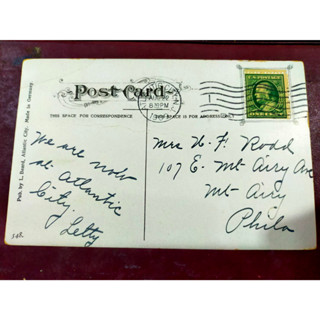 Post Card
THIS SPACE FOR CORRESPONDENCE
THIS SPACE IS FOR ADDRESS ONLY
Pub. by L. Beard, Atlantic City, Made in Germany
We are now
at Atlantic
City.
Letty
Mrs H. F. Rodd
107 E. Mt Airy Ave
Mt Airy
Phila
8 30 PM